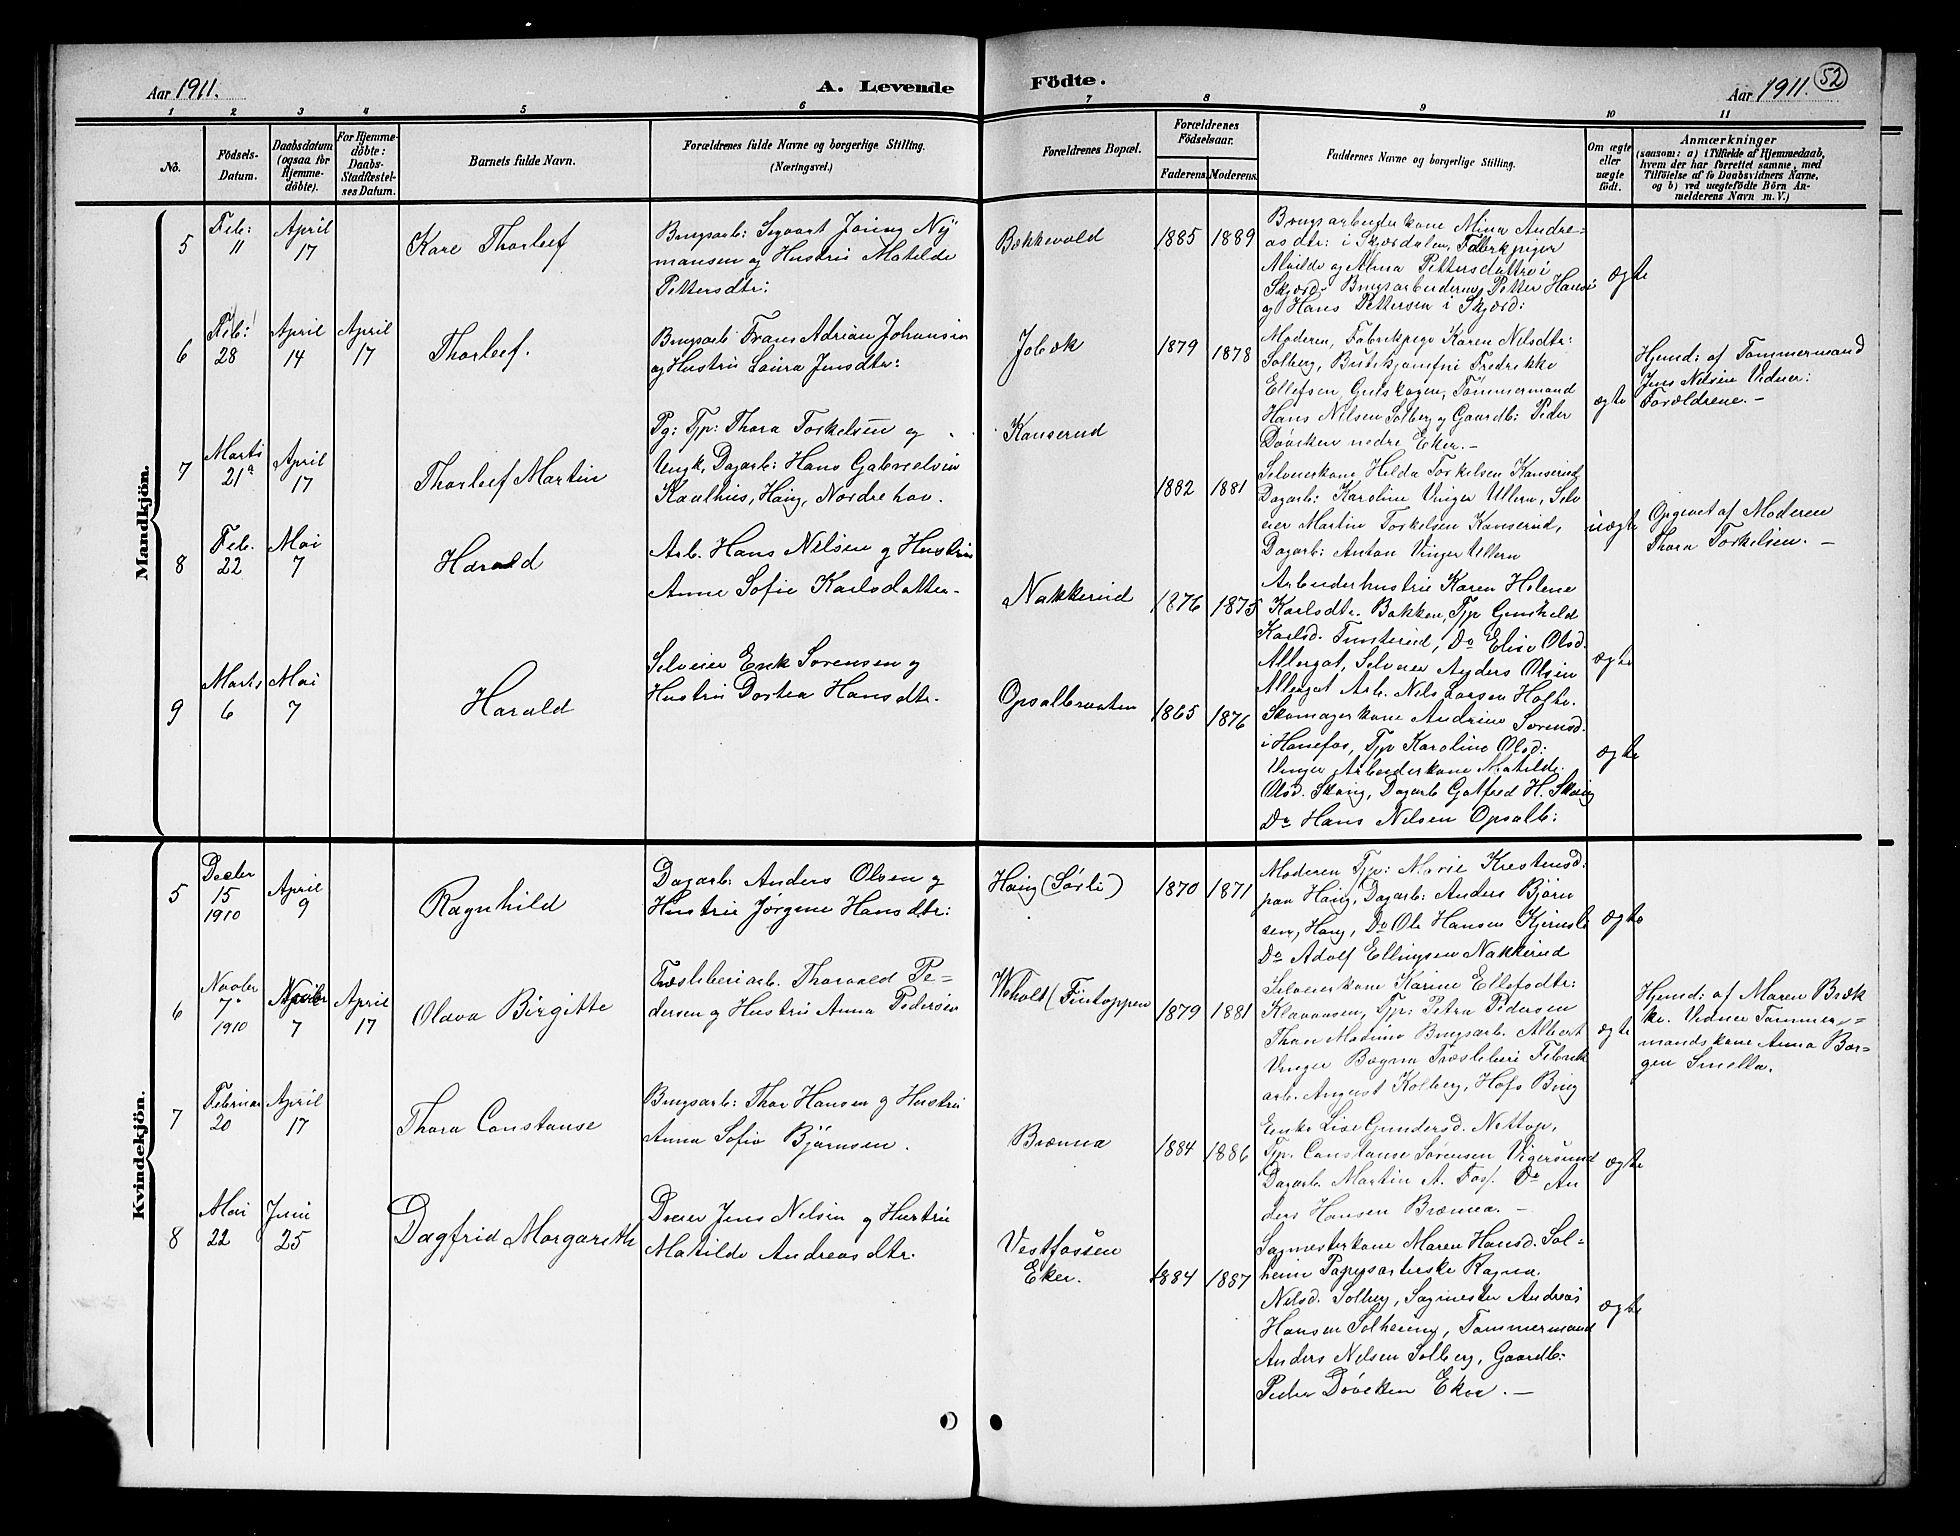 Aar 1911.
A. Levende Födte.
Aar 1911. 52
1 2 3 4 5 6 7 8 9 10 11
No.
Födsels-
Datum.
Daabsdatum
(ogsaa for
Hjemme-
döbte).
For Hjemme-
döbte:
Daabs-
Stadfæstel-
ses Datum.
Barnets fulde Navn.
Forældrenes fulde Navne og borgerlige Stilling.
(Næringsvei.)
Forældrenes Bopæl.
Forældrenes
Födselsaar.
Faderens. Moderens.
Faddernes Navne og borgerlige Stilling.
Om ægte
eller
uægte
født.
Anmærkninger
(saasom: a) i Tilfælde af Hjemmedaab,
hvem der har forrettet samme, med
Tilföielse af to Daabsvidners Navne,
og b) ved uægtefödte Börn An-
melderens Navn m. V.)
Mandkjön.
5
Feb:
11
April
17
Kare Thorleef
Brugsarb: Segvart Jöring Ny
mansen og Hustru Matilde
Pettersdtr:
Bækkevold
1885 1889
Brugsarbeiderkone Mina Andre-
asdtr: i Skjærdalen, Fabrikpiger
Alvilde og Alma Pettersdattre i
Skjærd. Brugsarbeiderne Petter Hansen
og Hans Pettersen i Skjærd:
ægte
6
Feb:
28
April
14
April
17
Thorleef.
Brugsarb. Frans Adrian Johansen
og Hustru Laura Jensdtr:
Jobæk
1879 1878
Moderen, Fabrikpige Karen Nelsdtr:
Solberg, Butikjomfru Fredrikke
Ellefsen, Gulskogen, Tömmermand
Hans Nilsen Solberg og Gaardb: Peder
Döviken nedre Eker. —
ægte
Hjemd: af Tömmermand
Jens Nelsen Vidner:
Forældrene. —
7
Marts
21
April
17
Thorleef Martin
Pg: Tjp: Thora Torkelsen og
Ungk. Dagarb: Hans Gabrielsen
Kaalhus, Haug, Norderhov.
Kanserud
1882 1881
Selveierkone Helda Torkelsen Kanserud
Dagarb: Karoline Vinger Ullern, Selv
eier Martin Torkelsen Kanserud,
Dagarb: Anton Vinger Ullern
uægte
Opgivet af Moderen
Thora Torkelsen. —
8
Feb.
22
Mai
7
Harald
Arb. Hans Nelsen og Hustru
Anne Sofie Karlsdatter
Nakkerud
1876 1875
Arbeiderhustru Karen Helene
Karlsdtr. Bakken, Tjp Gunhild
Karlsd. Tunterud, Do Elise Olsd.
Allergot, Selveier Anders Olsen
Allergot Arb. Nels Larsen Holte.
ægte
9
Marts
6
Mai
7
Harald
Selveier Erik Sorensen og
Hustru Dortea Hansdtr.
Opsalbraaten
1865 1876
Skomagerkone Andrine Sorensd.
i Hönefos, Tjp Karoline Olsd:
Vinger Arbeiderkone Matilde
Olsd. Skoug, Dagarb Gotfred H. Skoug
Do Hans Nelsen Opsalb:
ægte
Kvindekjön.
5
Decbr
15
1910
April
9
Ragnhild
Dagarb: Anders Olsen og
Hustru Jörgene Hansdtr:
Haug (Sörli)
1870 1871
Moderen Tjp: Marie Krestensd:
paa Haug, Dagarb: Anders Björn
sen, Haug, Do Ole Hansen Kjernsli
Do Adolf Ellingsen Nakkerud
ægte
6
Novbr
7
1910
Novbr
7
April
17
Olava Birgitte
Træsleberiarb. Thorvald Pe-
dersen og Hustru Anna Pedersen
Wehold (Furutoppen
1879 1881
Selveierkone Karine Ellefsdtr:
Klavensen, Tjp: Petra Pedersen
Thon Modum Brugsarb. Albert
Vinger Bægna Træsleberi Fabrik
arb. August Kolberg, Hofs Brug
ægte
Hjemd: af Maren Bræk
ke. Vidner Tömmer-
mandskone Anna Bor-
gen Smetta.
7
Februar
20
April
17
Thora Constanse
Brugsarb: Thor Hansen og Hustru
Anna Sofie Björnsen.
Brænna
1884 1886
Enke Lise Gundersd. Nettop,
Tjp. Constanse Sörensen Vigersund
Dagarb. Martin A. Fos. Do An
ders Hansen Brænna. —
ægte
8
Mai
22
Juni
25
Dagfrid Margareth
Dreier Jens Nelsen og Hustru
Matilde Andreasdtr.
Vestfossen
Eker.
1884 1887
Sagmesterkone Maren Hansd. Sol-
heim Papirsorterske Ragna
Nelsd. Solberg, Sagmester Andreas
Hansen Solheim, Tömmermand
Anders Nelsen Solberg, Gaardb:
Peder Döviken Eker. —
ægte